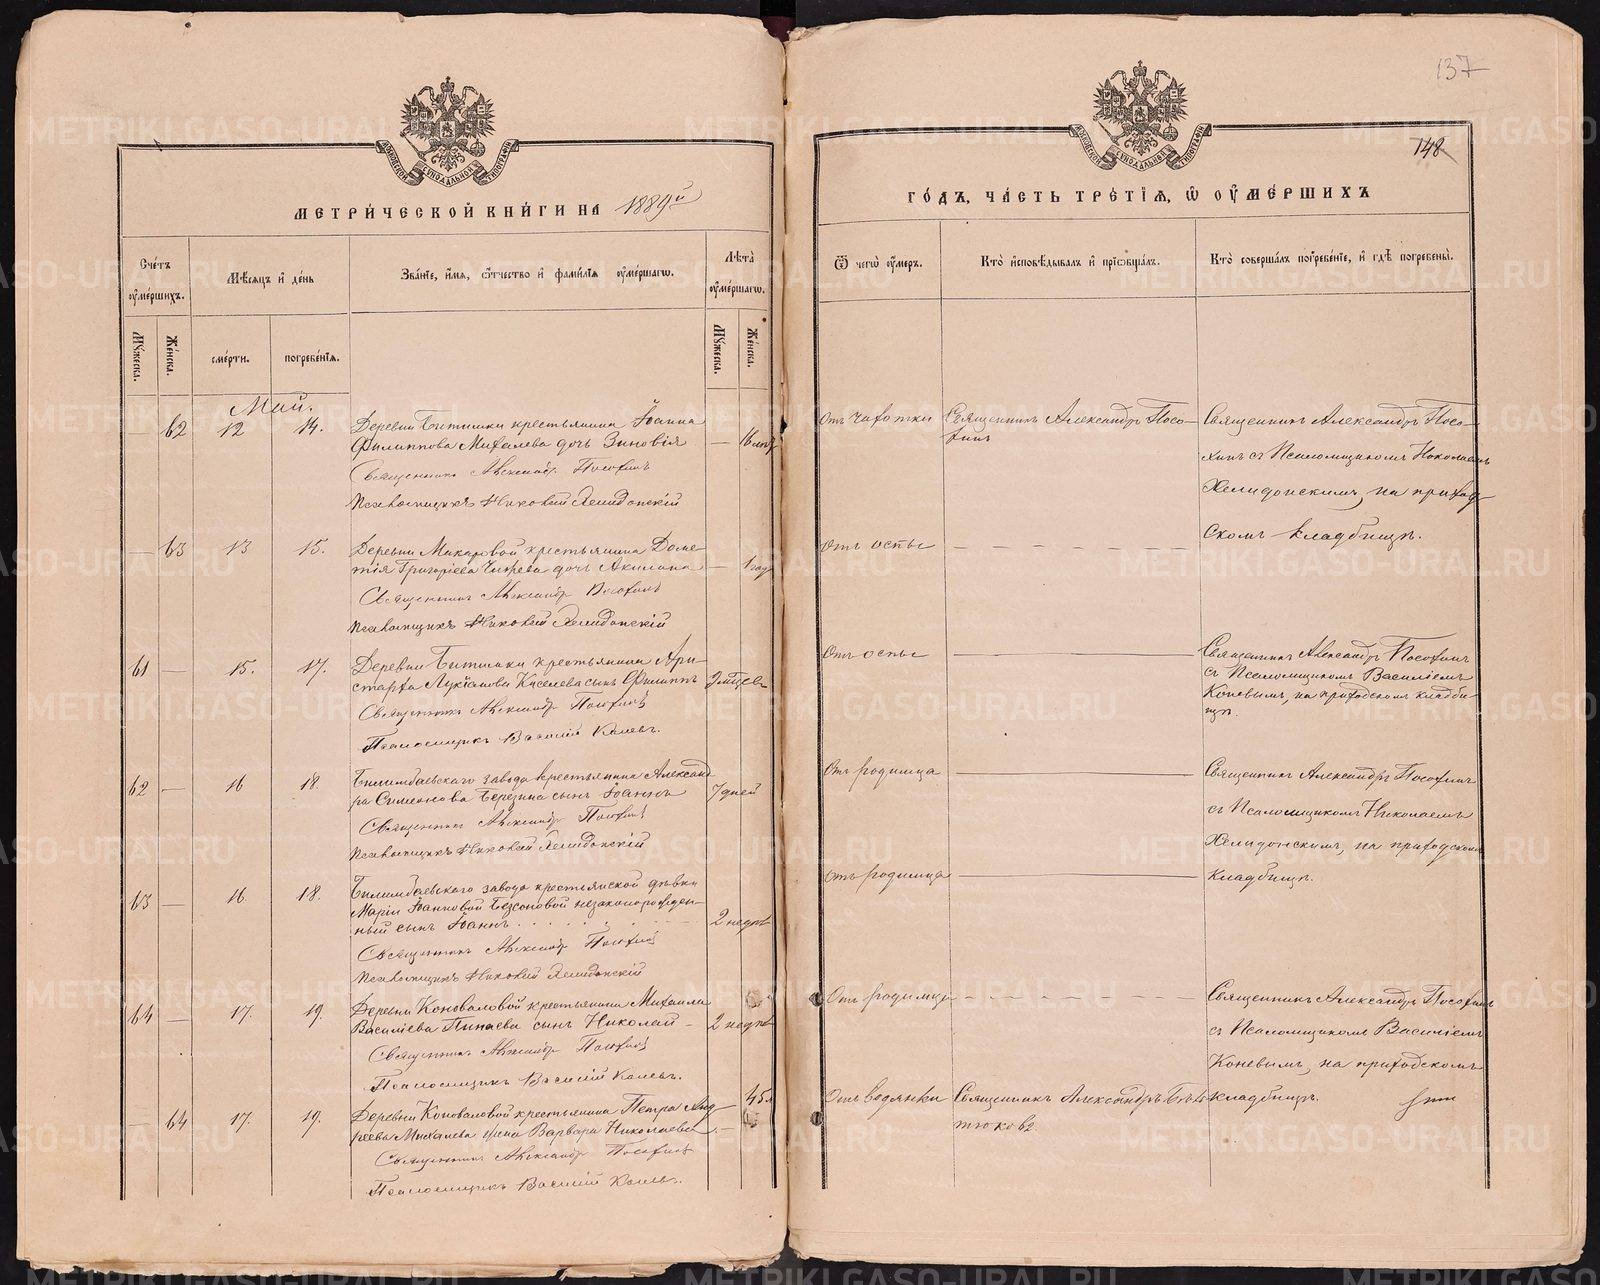 137
148
МЕТРИ́ЧЕСКОЙ КНИ́ГИ НА 1889й
ГО́ДЪ, ЧА́СТЬ ТРЕ́ТЇѦ, Ѽ ОУ҆МЕ́РШИХЪ
Сче́тъ оу҆ме́ршихъ.
Мѣ́сѧцъ и҆ де́нь
Зва́нїе, и҆́мѧ, ѻ҆́тчество и҆ фами́лїѧ оу҆ме́ршагѡ.
Лѣ́та оу҆ме́ршагѡ.
Ѿ чегѡ̀ оу҆́меръ.
Кто̀ и҆сповѣ́дывалъ и҆ прїѡбща́лъ.
Кто̀ соверша́лъ погребе́нїе, и҆ гдѣ̀ погребены̀.
Му́жеска.
Же́нска.
сме́рти.
погребе́нїѧ.
Му́жеска.
Же́нска.
Май.
62 12 14. Деревни Битимки крестьянина Іоанна
Филиппова Михалева дочь Зиновія — 16 лѣтъ
Священникъ Александръ Посохинъ
Псаломщикъ Николай Хелидонскій
Отъ чахотки
Священникъ Александръ Посо-
хинъ
Священникъ Александръ Посо-
хинъ съ Псаломщикомъ Николаемъ
Хелидонскимъ, на приход-
скомъ кладбищѣ.
— 63 13 15. Деревни Макаровой крестьянина Доме-
тія Григоріева дочь Акилина — 1 год
Священникъ Александръ Посохинъ
Псаломщикъ Николай Хелидонскій
Отъ оспы — — — —
61 — 15. 17. Деревни Битимки крестьянина Ари-
старха Лукіанова Киселева сынъ Филиппъ
Священникъ Александръ Посохинъ
Псаломщикъ Василій Коневъ.
Отъ оспы
Священникъ Александръ Посохинъ
съ Псаломщикомъ Василіемъ
Коневымъ, на приходскомъ кладби-
щѣ.
62 — 16 18. Билимбаевскаго завода крестьянина Александ
ра Симеонова Березина сынъ Іоаннъ 7 дней
Священникъ Александръ Посохинъ
Псаломщикъ Николай Хелидонскій
Отъ родимца
Священникъ Александръ Посохинъ
съ Псаломщикомъ Николаемъ
Хелидонскимъ, на приходскомъ
кладбищѣ.
63 — 16. 18. Билимбаевскаго завода крестьянской дѣвки
Маріи Іоанновой Безсоновой незаконорожден-
ный сынъ Іоаннъ 2 недѣл
Священникъ Александръ Посохинъ
Псаломщикъ Николай Хелидонскій
Отъ родимца
64 — 17. 19. Деревни Коноваловой крестьянина Михаила
Василіева Пинаева сынъ Николай — 2 недѣл
Священникъ Александръ Посохинъ
Псаломщикъ Василій Коневъ.
Отъ родимца — — — —
Священникъ Александръ Посохинъ
съ Псаломщикомъ Василіемъ
Коневымъ, на приходскомъ
кладбищѣ.
— 64 17. 19. Деревни Коноваловой крестьянина Петра Анд-
реева Михалева жена Варвара Николаева — 45 л
Священникъ Александръ Посохинъ
Псаломщикъ Василій Коневъ.
Отъ водянки
Священникъ Александръ
METRIKI.GASO-URAL.RU